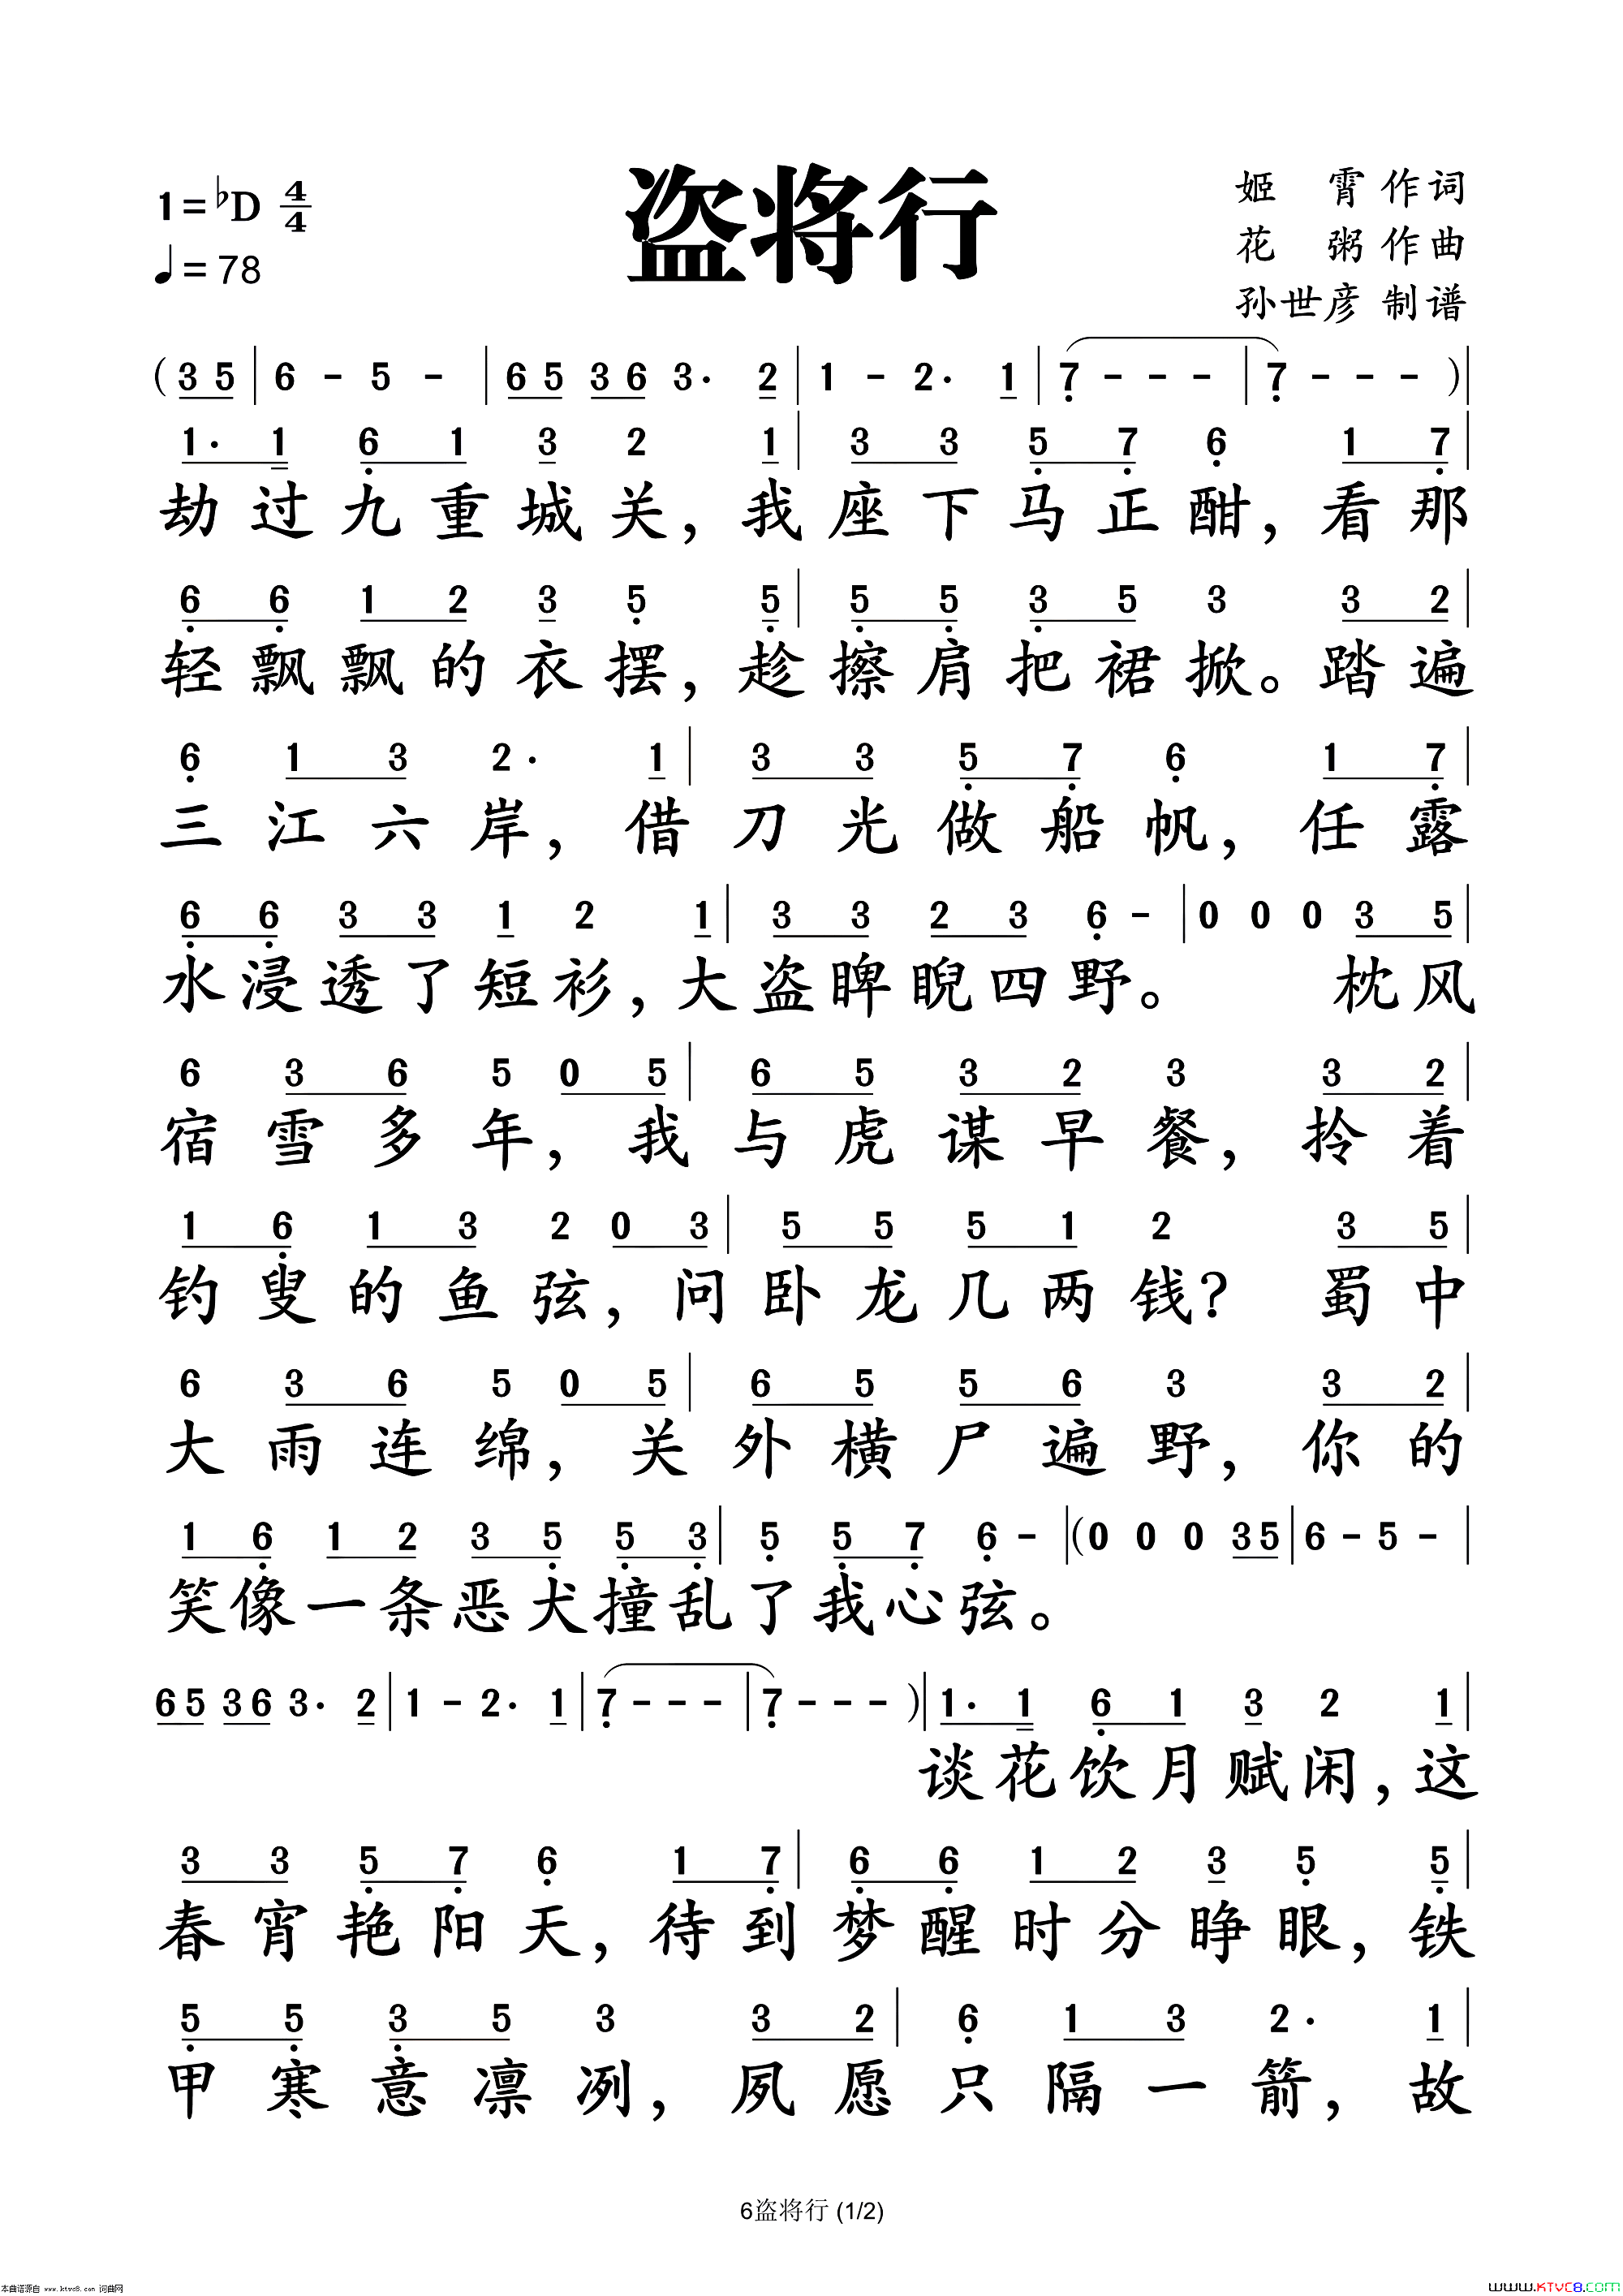 1=♭D 4/4
♩=78
盗将行
姬 霄 作词
花 粥 作曲
孙世彦 制谱
(3 5 | 6 - 5 - | 6 5 3 6 3· 2 | 1 - 2· 1 | 7̣ - - - | 7̣ - - - )|
1· 1 6̣ 1 3 2 1 | 3 3 5̣ 7̣ 6̣ 1 7̣ |
劫过九重城关，我座下马正酣，看那
6̣ 6̣ 1 2 3 5̣ 5̣ | 5̣ 5̣ 3̣ 5 3 3 2 |
轻飘飘的衣摆，趁擦肩把裙掀。踏遍
6̣ 1 3 2· 1 | 3 3 5̣ 7̣ 6̣ 1 7̣ |
三江六岸，借刀光做船帆，任露
6̣ 6̣ 3 3 1 2 1 | 3 3 2 3 6̣ - | 0 0 0 3 5 |
水浸透了短衫，大盗睥睨四野。 枕风
6 3 6 5 0 5 | 6 5 3 2 3 3 2 |
宿雪多年，我与虎谋早餐，拎着
1 6̣ 1 3 2 0 3 | 5 5 5 1 2 3 5 |
钓叟的鱼弦，问卧龙几两钱？ 蜀中
6 3 6 5 0 5 | 6 5 5 6 3 3 2 |
大雨连绵，关外横尸遍野，你的
1 6̣ 1 2 3 5̣ 5̣ 3̣ | 5̣ 5̣ 7̣ 6̣ - |(0 0 0 3 5 | 6 - 5 - |
笑像一条恶犬撞乱了我心弦。
6 5 3 6 3· 2 | 1 - 2· 1 | 7̣ - - - | 7̣ - - - )| 1· 1 6̣ 1 3 2 1 |
谈花饮月赋闲，这
3 3 5̣ 7̣ 6̣ 1 7̣ | 6̣ 6̣ 1 2 3 5̣ 5̣ |
春宵艳阳天，待到梦醒时分睁眼，铁
5̣ 5̣ 3̣ 5 3 3 2 | 6̣ 1 3 2· 1 |
甲寒意凛冽，夙愿只隔一箭，故
6盗将行 (1/2)
本曲谱源自 www.ktvc8.com 词曲网
www.KTVC8.COM